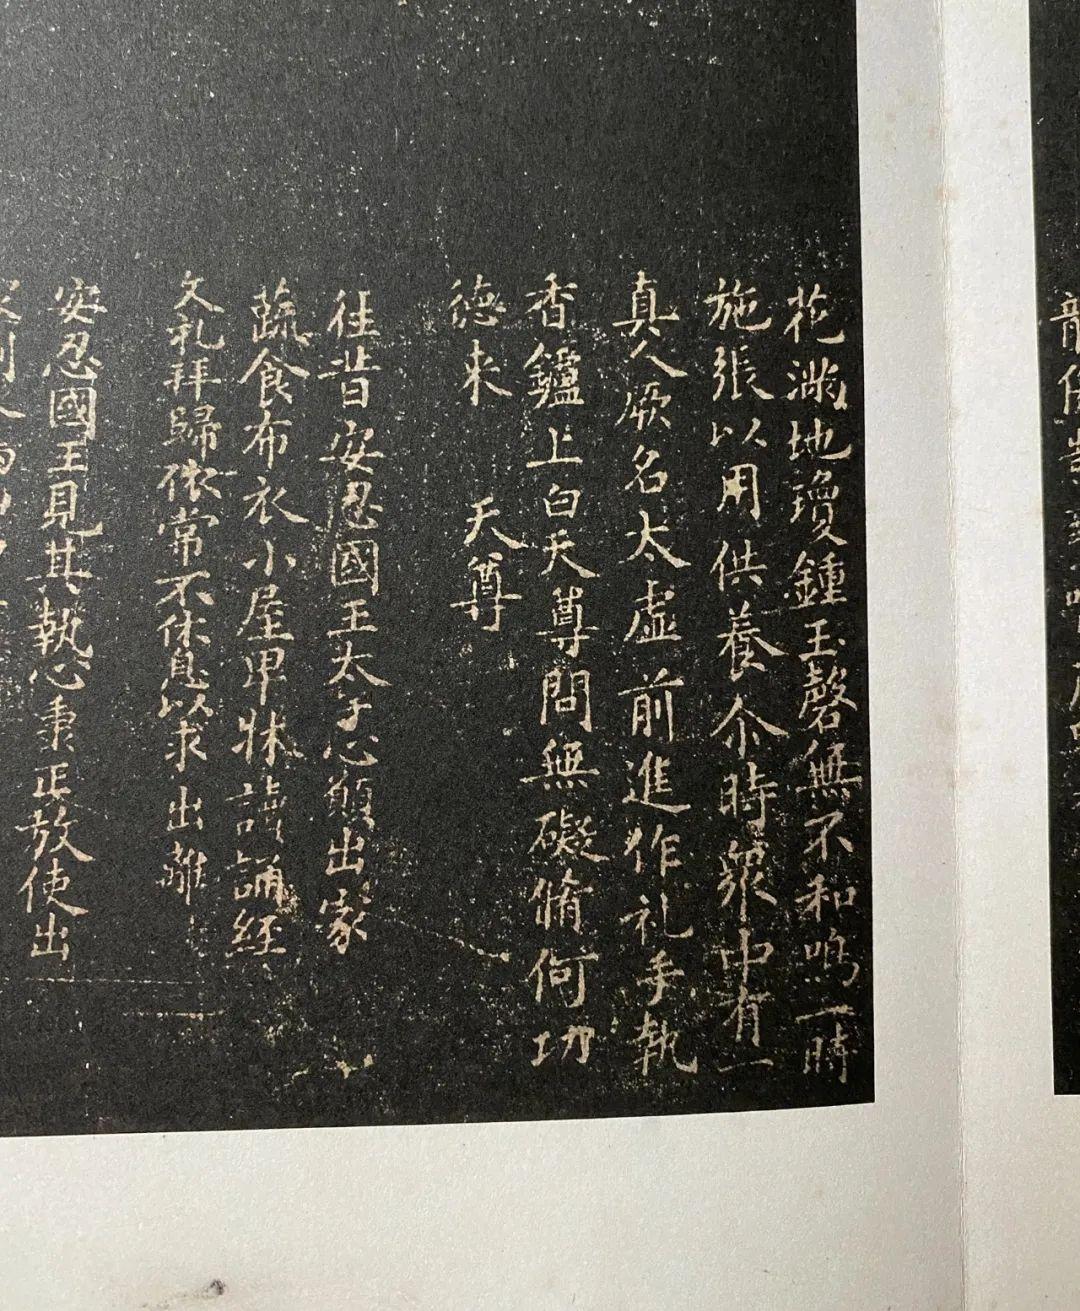 花滿地瓊鍾玉磬無不和鳴一時
施張以用供養尒時衆中有一
真人厥名太虛前進作礼手執
香鑪上白天尊問無礙脩何功
德來　天尊
往昔安忍國王太子心願出家
蔬食布衣小屋卑牀讀誦經
文礼拜歸依常不休息以求出離
安忍國王見其執心秉正放使出